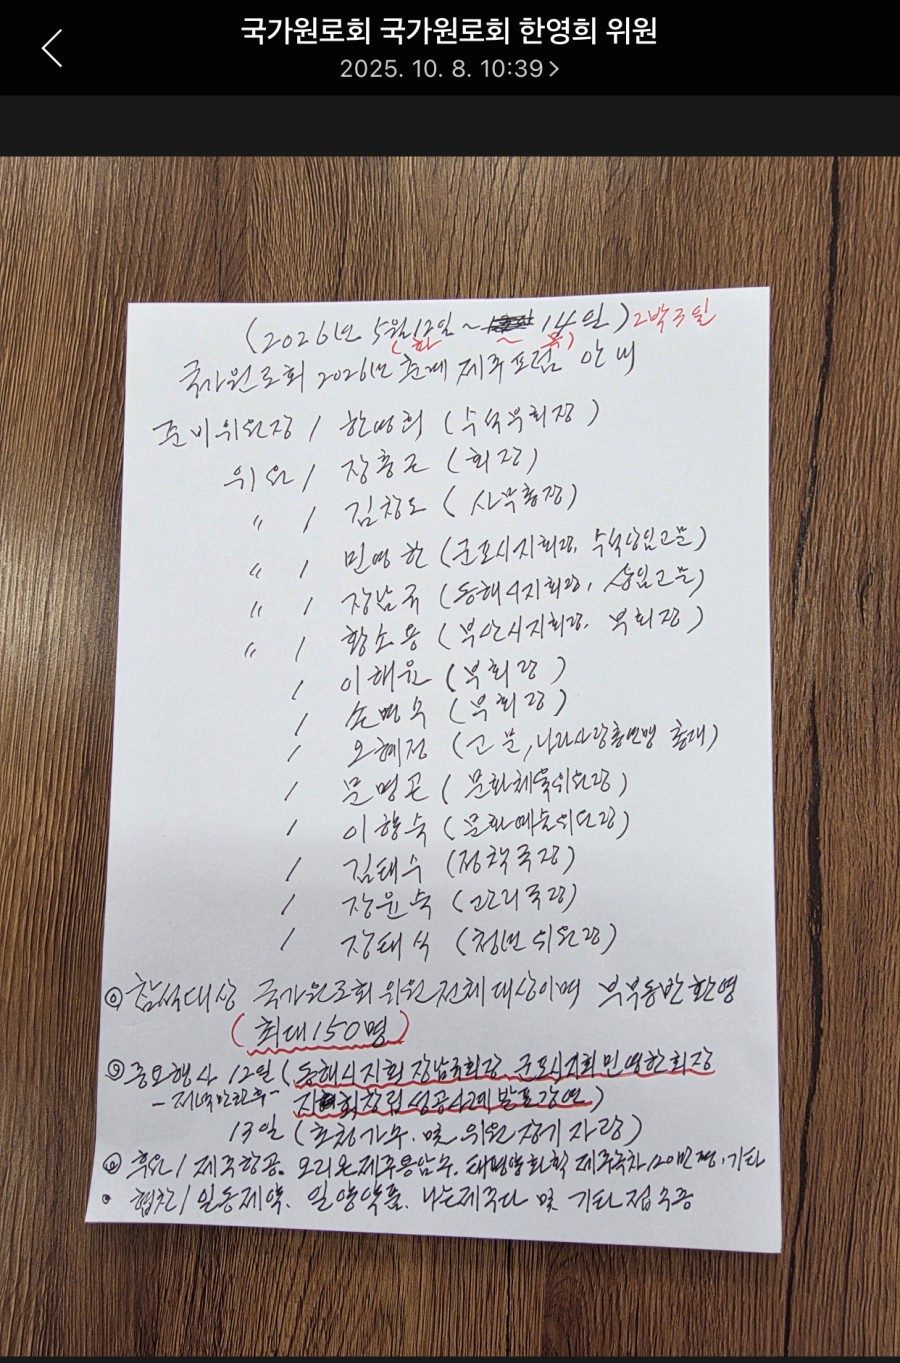 국가원로회 국가원로회 한영희 위원
2025. 10. 8. 10:39 >
(2026년 5월 12일 ~ 14일) 2박3일
(화 ~ 목)
국가원로회 2026년 춘계 제주포럼 안내
준비위원장 / 한영희 (수석부회장)
위원 / 장흥근 (회장)
〃 / 김창도 (사무총장)
〃 / 민영한 (군포시지회장, 수석상임고문)
〃 / 장남국 (동해시지회장, 상임고문)
〃 / 황소용 (부산시지회장, 부회장)
/ 이해윤 (부회장)
/ 손명숙 (부회장)
/ 오혜정 (고문, 나라사랑총연맹 총재)
/ 문명곤 (문화체육위원장)
/ 이향숙 (문화예술위원장)
/ 김태수 (정책국장)
/ 장윤숙 (관리국장)
/ 장태식 (청년위원장)
참석대상 국가원로회 위원 전체 대상이며 부부동반 환영
(최대 150명)
중요행사 12일 (동해시지회 장남국회장, 군포시지회 민영한회장
- 저녁만찬후 - 지회창립 성공사례 발표강연)
13일 (초청가수. 및 위원 장기자랑)
후원 / 제주항공. 오리온제주용암수. 태평양화학 제주녹차 120만평, 기타
협찬 / 일동제약. 일양약품. 나는제주다 및 기타 접수중